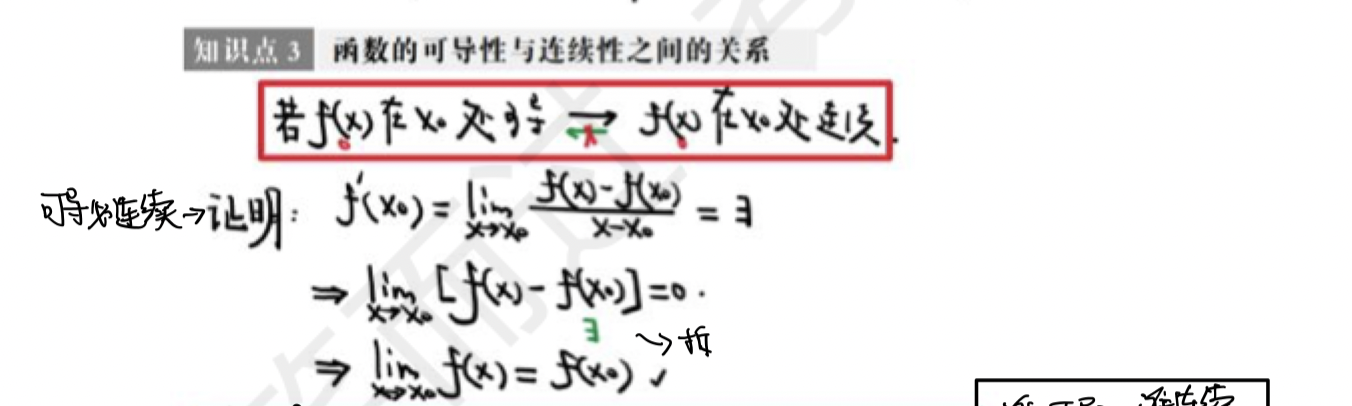 知识点 3 函数的可导性与连续性之间的关系
若 f(x) 在 x₀ 处可导 → f(x) 在 x₀ 处连续.
可导必连续→证明: f'(x₀) = lim x→x₀ f(x)-f(x₀) / x-x₀ = ∃
⇒ lim x→x₀ [f(x) - f(x₀)] = 0.
∃ → 拆
⇒ lim x→x₀ f(x) = f(x₀) ✓